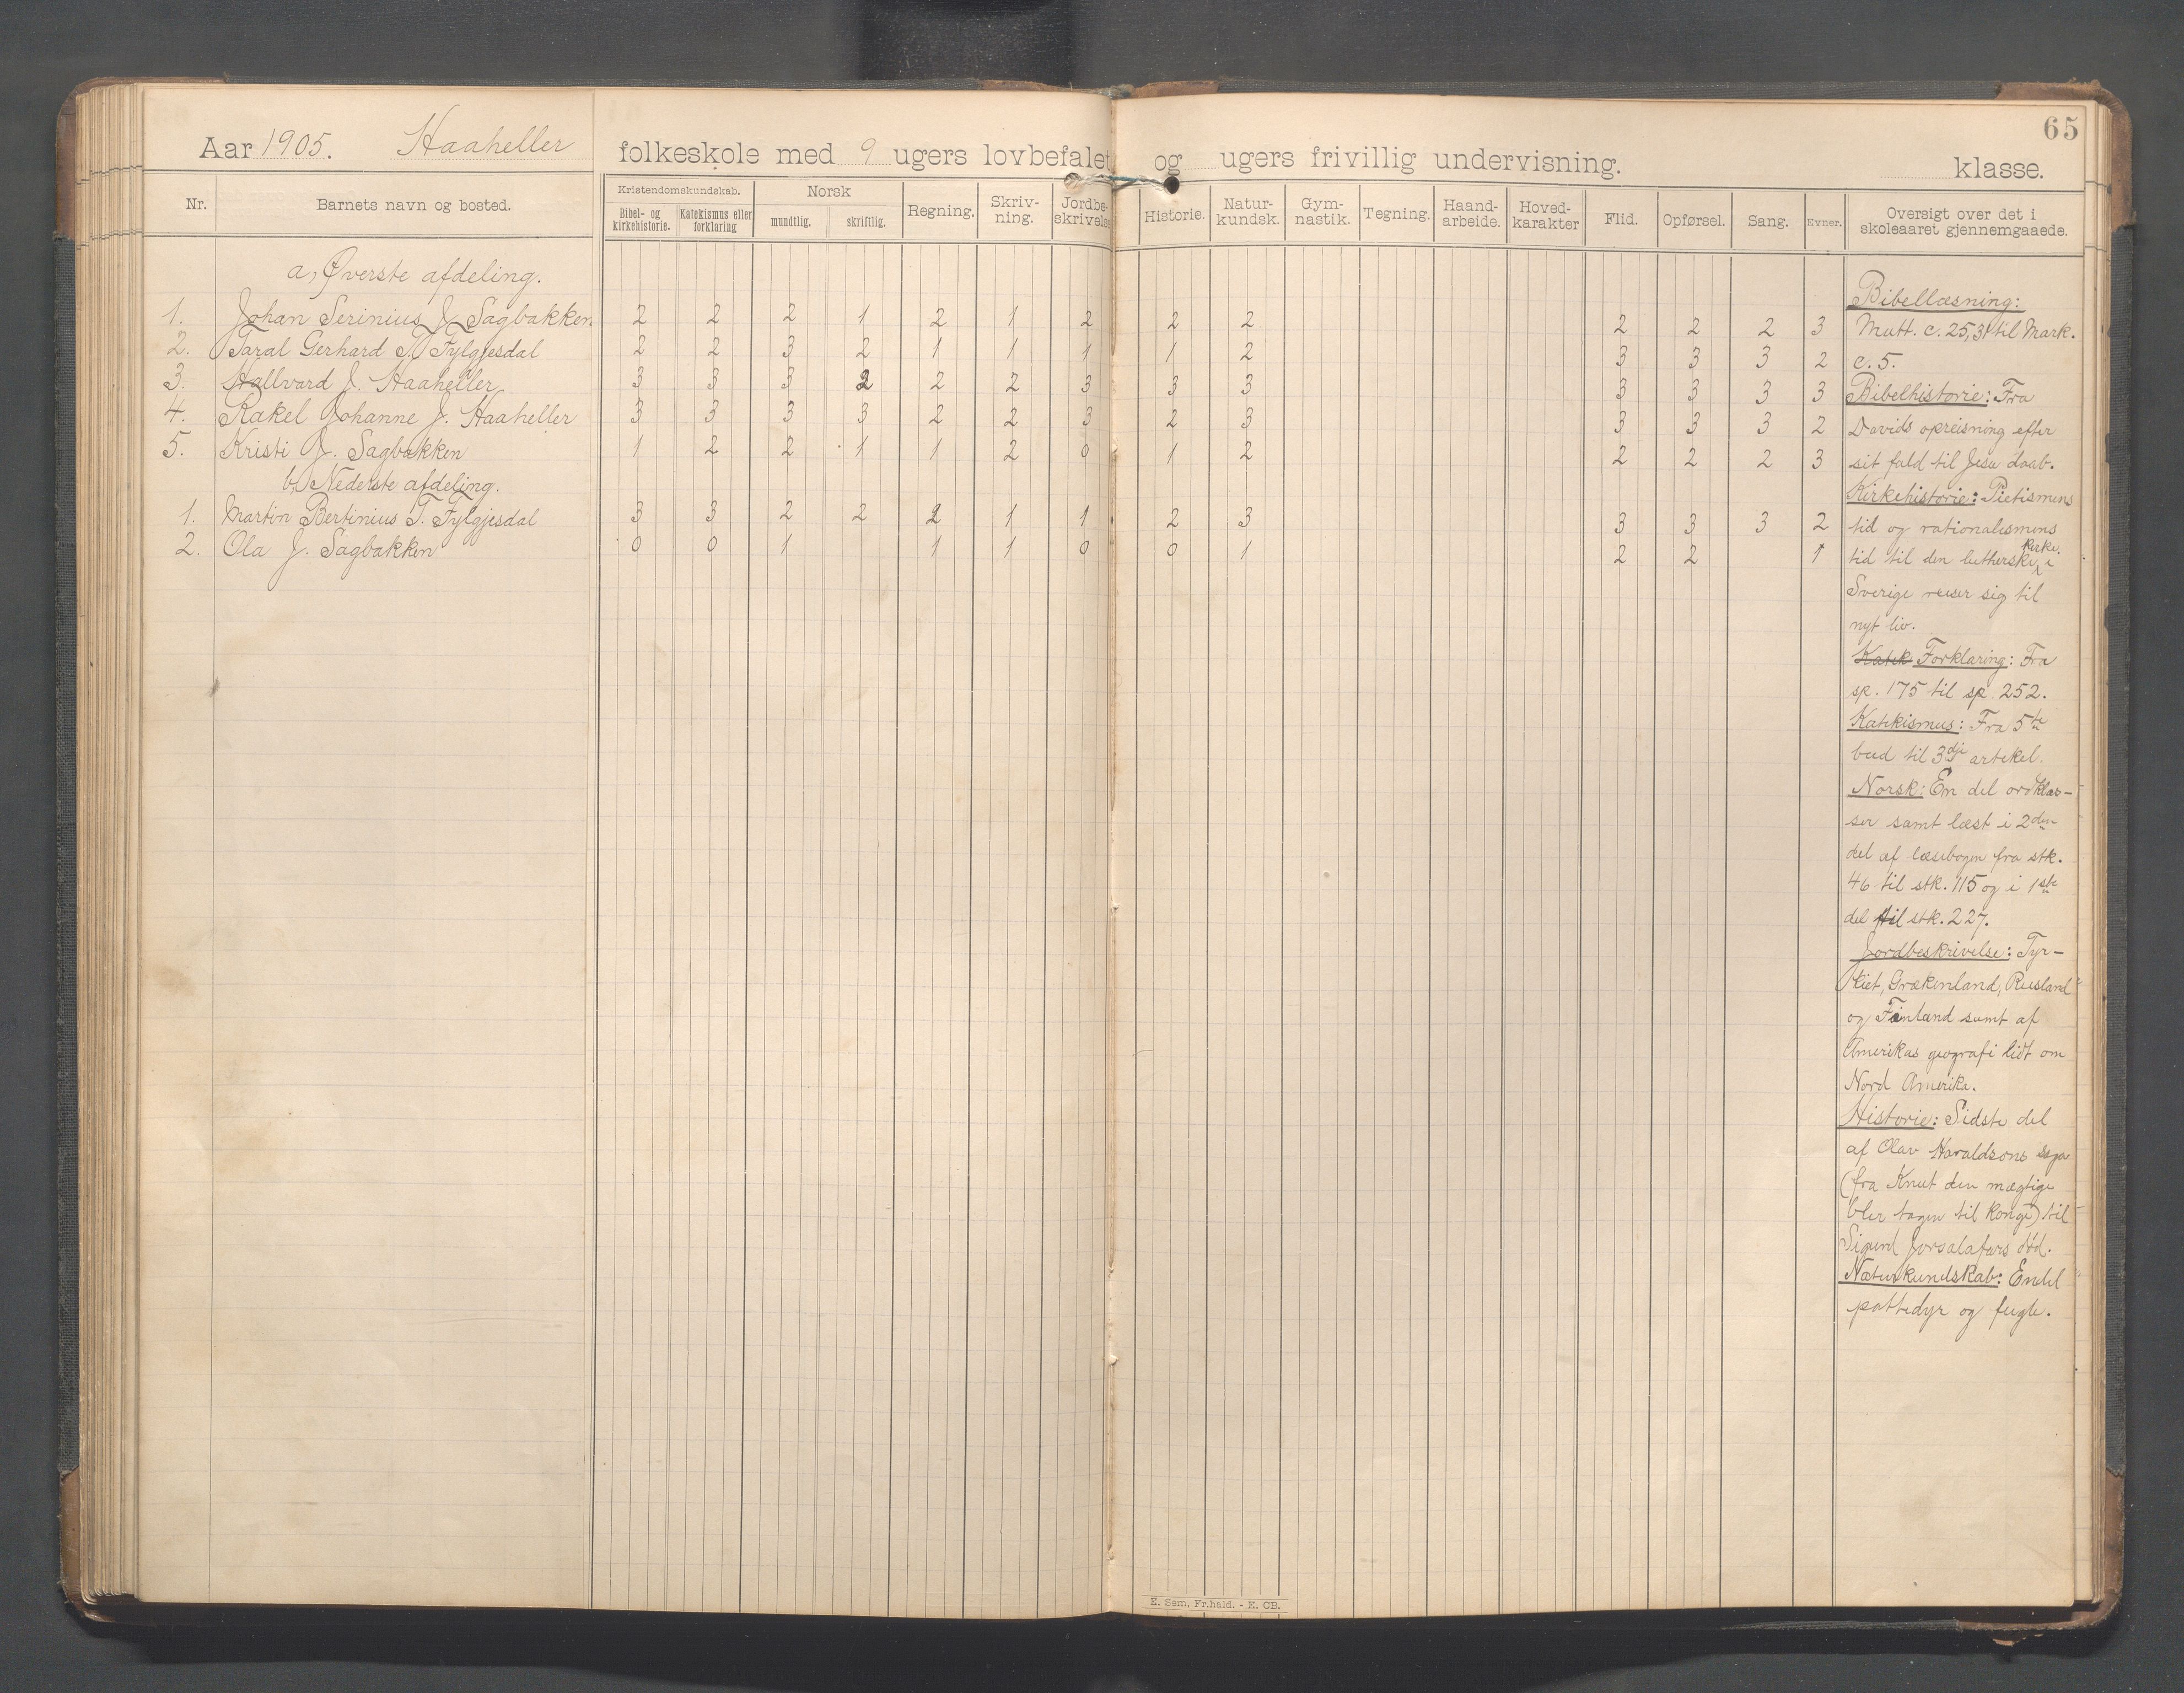 65
Aar 1905. Haaheller folkeskole med 9 ugers lovbefalet og ugers frivillig undervisning. klasse.
Nr. Barnets navn og bosted. Kristendomskundskab. Bibel- og kirkehistorie. Katekismus eller forklaring Norsk mundtlig. skriftlig. Regning. Skriv-ning. Jordbe-skrivelse Historie. Natur-kundsk. Gym-nastik. Tegning. Haand-arbeide. Hoved-karakter Flid. Opførsel. Sang. Evner. Oversigt over det i skoleaaret gjennemgaaede.
a, Øverste afdeling.
1. Johan Serinius J. Sagbakken 2 2 2 1 2 1 2 2 2 2 2 2 3
2. Taral Gerhard T. Fylgjesdal 2 2 3 2 1 1 1 1 2 3 3 3 2
3. Hallvard J. Haaheller 3 3 3 2 2 2 3 3 3 3 3 3 3
4. Rakel Johanne J. Haaheller 3 3 3 3 2 2 3 2 3 3 3 3 2
5. Kristi J. Sagbakken 1 2 2 1 1 2 0 1 2 2 2 2 3
b, Nederste afdeling.
1. Martin Bertinius T. Fylgjesdal 3 3 2 2 2 1 1 2 3 3 3 3 2
2. Ola J. Sagbakken 0 0 1 1 1 0 0 1 2 2 1
Bibellæsning:
Matt. c. 25,31 til Mark.
c. 5.
Bibelhistorie: Fra
Davids opreisning efter
sit fald til Jesu daab.
Kirkehistorie: Pietismens
tid og rationalismens
tid til den lutherske kirke i
Sverige reiser sig til
nyt liv.
Katek Forklaring: Fra
sp. 175 til sp. 252.
Katekismus: Fra 5te
bud til 3dje artekel.
Norsk: En del ordklas-
ser samt læst i 2den
del af læsebogen fra stk.
46 til stk. 115 og i 1ste
del til stk. 227.
Jordbeskrivelse: Tyr-
kiet, Grækenland, Rusland
og Finland samt af
Amerikas geografi lidt om
Nord Amerika.
Historie: Sidste del
af Olav Haraldsons saga
(fra Knut den mægtige
blir tagen til konge) til
Sigurd Jorsalafars død.
Naturkundskab: Endel
pattedyr og fugle.
E. Sem, Fr.hald. - E. CB.